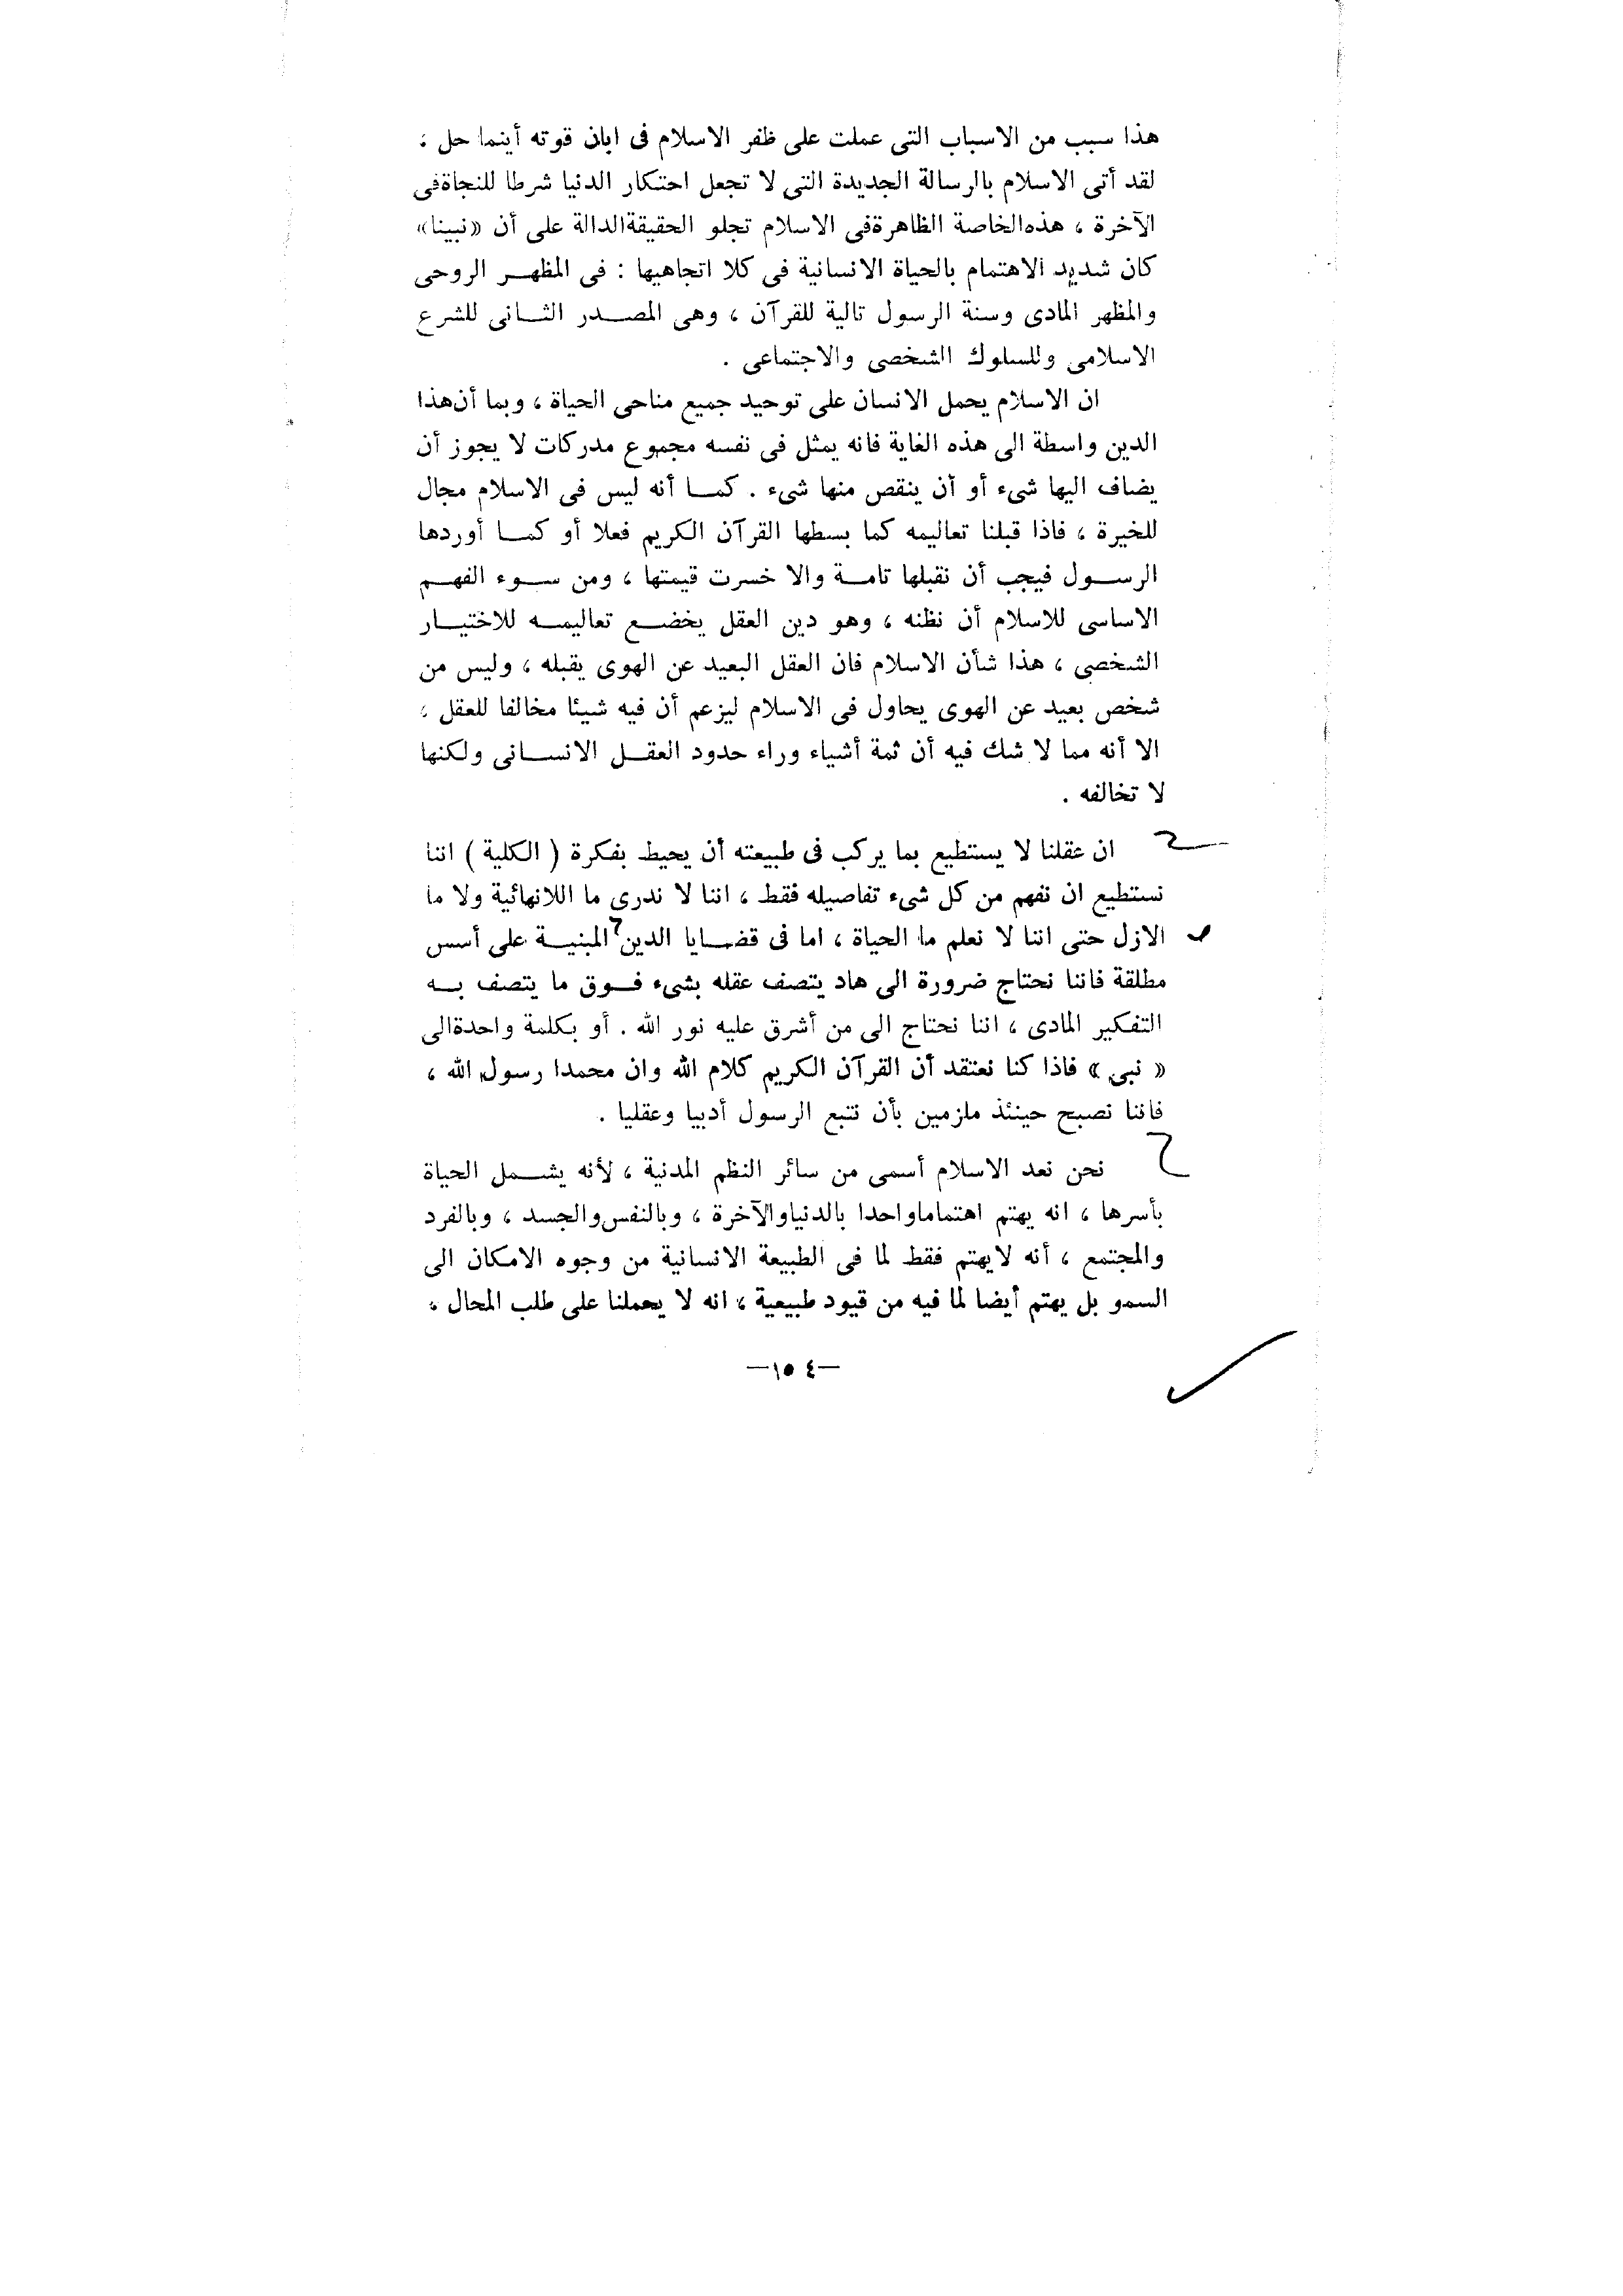 هذا سبب من الاسباب التى عملت على ظفر الاسلام فى ابان قوته أينما حل ،
لقد أتى الاسلام بالرسالة الجديدة التى لا تجعل احتكار الدنيا شرطا للنجاةفى
الآخرة ، هذهالخاصة الظاهرةفى الاسلام تجلو الحقيقةالدالة على أن «نبينا»
كان شديد الاهتمام بالحياة الانسانية فى كلا اتجاهيها : فى المظهر الروحى
والمظهر المادى وسنة الرسول تالية للقرآن ، وهى المصدر الثانى للشرع
الاسلامى وللسلوك الشخصى والاجتماعى .
ان الاسلام يحمل الانسان على توحيد جميع مناحى الحياة ، وبما أنهذا
الدين واسطة الى هذه الغاية فانه يمثل فى نفسه مجموع مدركات لا يجوز أن
يضاف اليها شىء أو أن ينقص منها شىء . كما أنه ليس فى الاسلام مجال
للخيرة ، فاذا قبلنا تعاليمه كما بسطها القرآن الكريم فعلا أو كما أوردها
الرسول فيجب أن نقبلها تامة والا خسرت قيمتها ، ومن سوء الفهم
الاساسى للاسلام أن نظنه ، وهو دين العقل يخضع تعاليمه للاختيار
الشخصى ، هذا شأن الاسلام فان العقل البعيد عن الهوى يقبله ، وليس من
شخص بعيد عن الهوى يحاول فى الاسلام ليزعم أن فيه شيئا مخالفا للعقل ،
الا أنه مما لا شك فيه أن ثمة أشياء وراء حدود العقل الانسانى ولكنها
لا تخالفه .
ان عقلنا لا يستطيع بما يركب فى طبيعته أن يحيط بفكرة ( الكلية ) اننا
نستطيع ان نفهم من كل شىء تفاصيله فقط ، اننا لا ندرى ما اللانهائية ولا ما
الازل حتى اننا لا نعلم ما الحياة ، اما فى قضايا الدين المبنية على أسس
مطلقة فاننا نحتاج ضرورة الى هاد يتصف عقله بشىء فوق ما يتصف به
التفكير المادى ، اننا نحتاج الى من أشرق عليه نور الله . أو بكلمة واحدةالى
« نبى » فاذا كنا نعتقد أن القرآن الكريم كلام الله وان محمدا رسول الله ،
فاننا نصبح حينئذ ملزمين بأن نتبع الرسول أدبيا وعقليا .
نحن نعد الاسلام أسمى من سائر النظم المدنية ، لأنه يشمل الحياة
بأسرها ، انه يهتم اهتماماواحدا بالدنياوالآخرة ، وبالنفسوالجسد ، وبالفرد
والمجتمع ، أنه لايهتم فقط لما فى الطبيعة الانسانية من وجوه الامكان الى
السمو بل يهتم أيضا لما فيه من قيود طبيعية ، انه لا يحملنا على طلب المحال ،
—١٥٤—